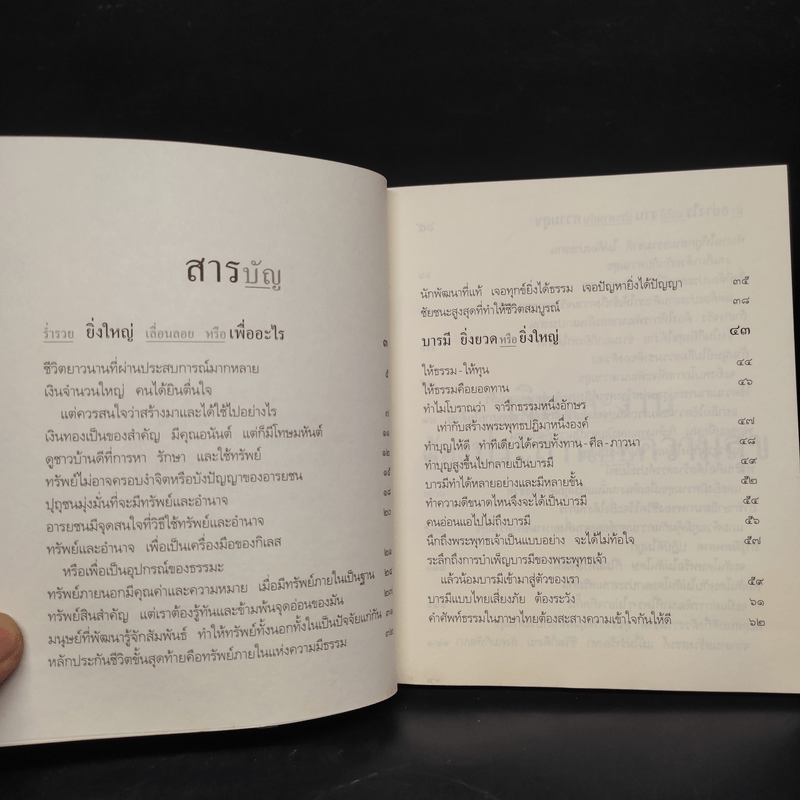 สารบัญ
ร่ำรวย ยิ่งใหญ่ เลื่อนลอย หรือ เพื่ออะไร ๓
ชีวิตยาวนานที่ผ่านประสบการณ์มากหลาย ๕
เงินจำนวนใหญ่ คนได้ยินตื่นใจ
แต่ควรสนใจว่าสร้างมาและได้ใช้ไปอย่างไร ๗
เงินทองเป็นของสำคัญ มีคุณอนันต์ แต่ก็มีโทษมหันต์ ๑๑
ดูชาวบ้านดีที่การหา รักษา และใช้ทรัพย์ ๑๒
ทรัพย์ไม่อาจครอบงำจิตหรือบังปัญญาของอารยชน ๑๕
ปุถุชนมุ่งมั่นที่จะมีทรัพย์และอำนาจ ๑๘
อารยชนมีจุดสนใจที่วิธีใช้ทรัพย์และอำนาจ ๒๐
ทรัพย์และอำนาจ เพื่อเป็นเครื่องมือของกิเลส
หรือเพื่อเป็นอุปกรณ์ของธรรมะ ๒๑
ทรัพย์ภายนอกมีคุณค่าและความหมาย เมื่อมีทรัพย์ภายในเป็นฐาน ๒๔
ทรัพย์สินสำคัญ แต่เราต้องรู้ทันและข้ามพ้นจุดอ่อนของมัน ๒๗
มนุษย์ที่พัฒนารู้จักสัมพันธ์ ทำให้ทรัพย์ทั้งนอกทั้งในเป็นปัจจัยแก่กัน ๓๑
หลักประกันชีวิตขั้นสุดท้ายคือทรัพย์ภายในแห่งความมีธรรม ๓๒
นักพัฒนาที่แท้ เจอทุกข์ยิ่งได้ธรรม เจอปัญหายิ่งได้ปัญญา ๓๕
ชัยชนะสูงสุดที่ทำให้ชีวิตสมบูรณ์ ๓๘
บารมี ยิ่งยวด หรือ ยิ่งใหญ่ ๔๓
ให้ธรรม-ให้ทุน ๔๔
ให้ธรรมคือยอดทาน ๔๖
ทำไมโบราณว่า จารึกธรรมหนึ่งอักษร
เท่ากับสร้างพระพุทธปฏิมาหนึ่งองค์ ๔๗
ทำบุญให้ดี ทำทีเดียวได้ครบทั้งทาน-ศีล-ภาวนา ๔๘
ทำบุญสูงขึ้นไปกลายเป็นบารมี ๔๙
บารมีทำได้หลายอย่างและมีหลายขั้น ๕๒
ทำความดีขนาดไหนจึงจะได้เป็นบารมี ๕๔
คนอ่อนแอไปไม่ถึงบารมี ๕๖
นึกถึงพระพุทธเจ้าเป็นแบบอย่าง จะได้ไม่ท้อใจ ๕๗
ระลึกถึงการบำเพ็ญบารมีของพระพุทธเจ้า
แล้วน้อมบารมีเข้ามาสู่ตัวของเรา ๕๙
บารมีแบบไทยเสี่ยงภัย ต้องระวัง ๖๑
คำศัพท์ธรรมในภาษาไทยต้องสะสางความเข้าใจกันให้ดี ๖๒